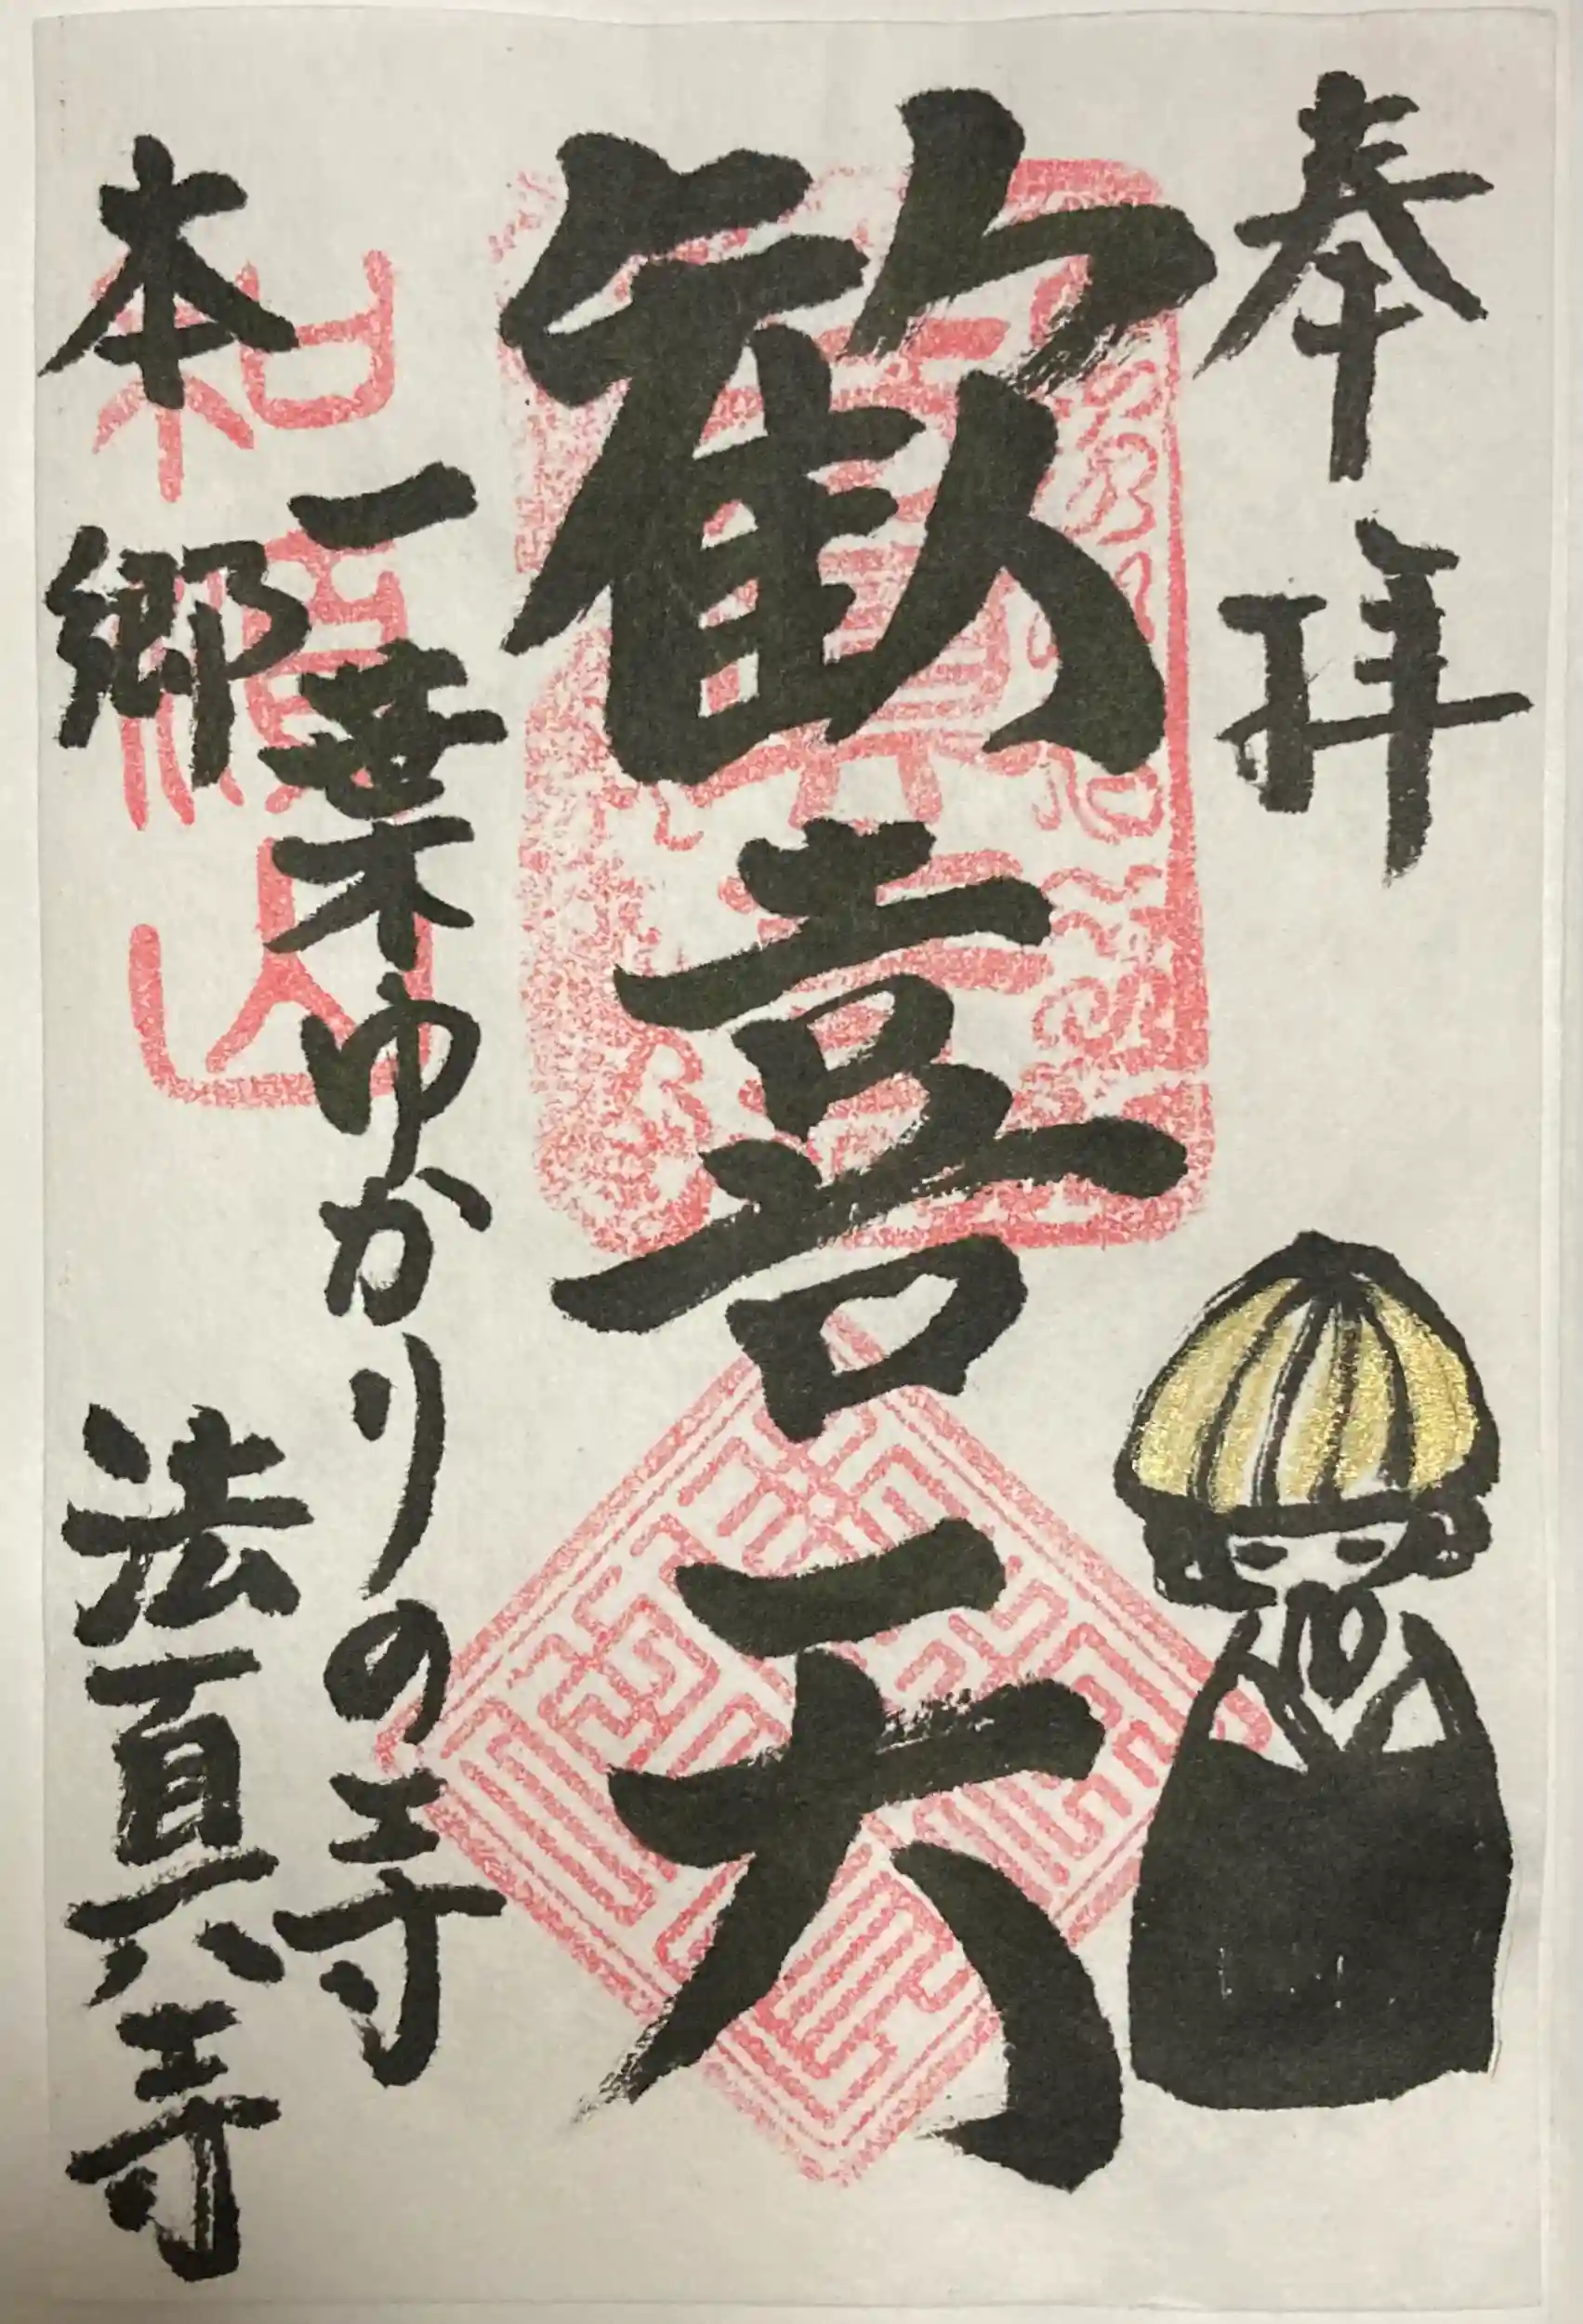 奉拝
歓喜二六
一葉ゆかりの寺
本郷 法真寺